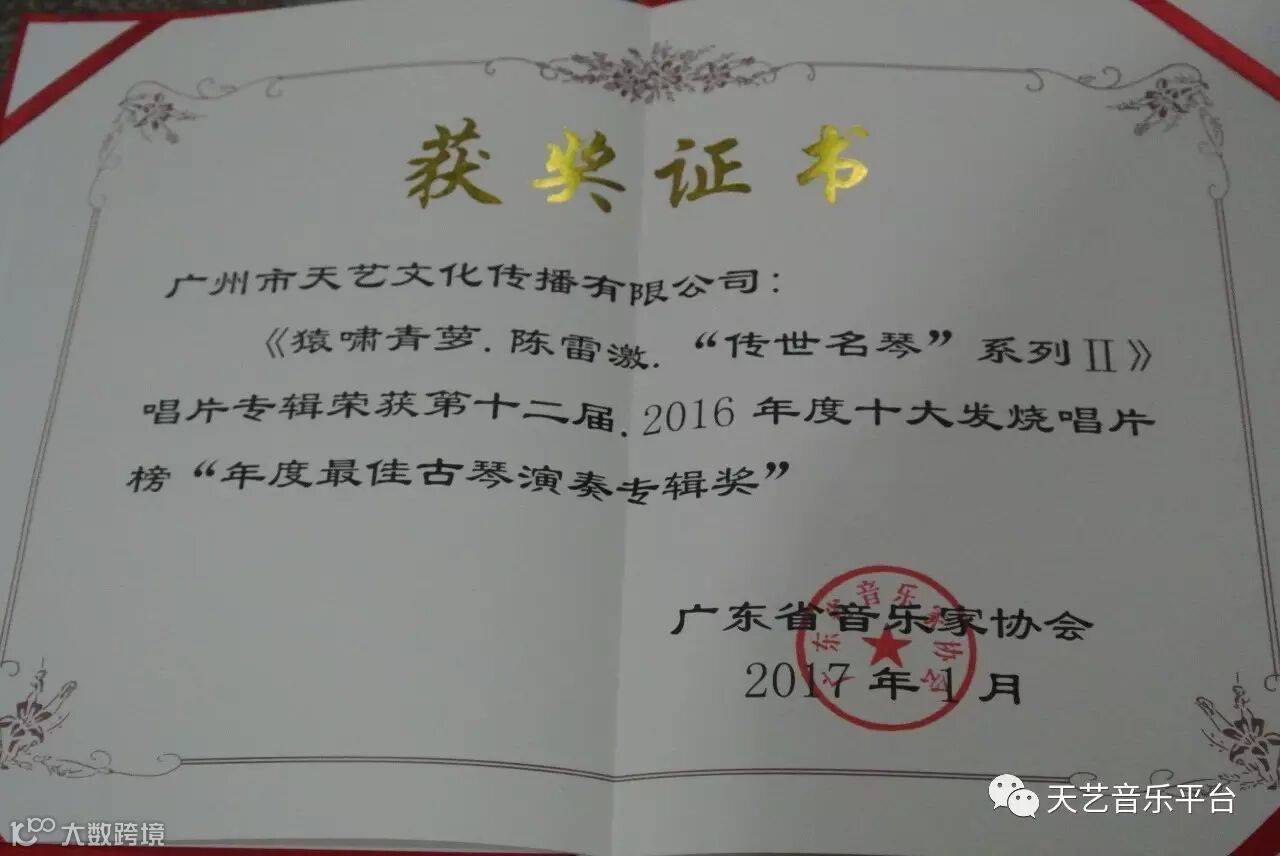 获奖证书
广州市天艺文化传播有限公司：
《猿啸青萝.陈雷激.“传世名琴”系列Ⅱ》
唱片专辑荣获第十二届.2016年度十大发烧唱片
榜“年度最佳古琴演奏专辑奖”
广东省音乐家协会
2017年1月
广东省音乐家协会
天艺音乐平台
大数跨境